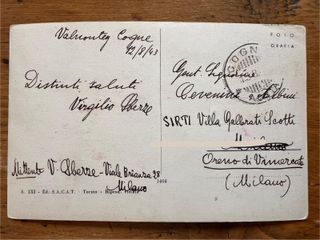 Valnontey Cogne
12/8/43
Distinti saluti
Virgilio Sberze
Mittente V. Sberze - Viale Brianza 28
Milano
A. 131 - Ed. S.A.C.A.T. - Torino -
1016
FOTO
GRAFIA
COGN
Gent. Signorina
SIRTI Villa Gallarati Scotti
Oreno di Vimercate
(Milano)